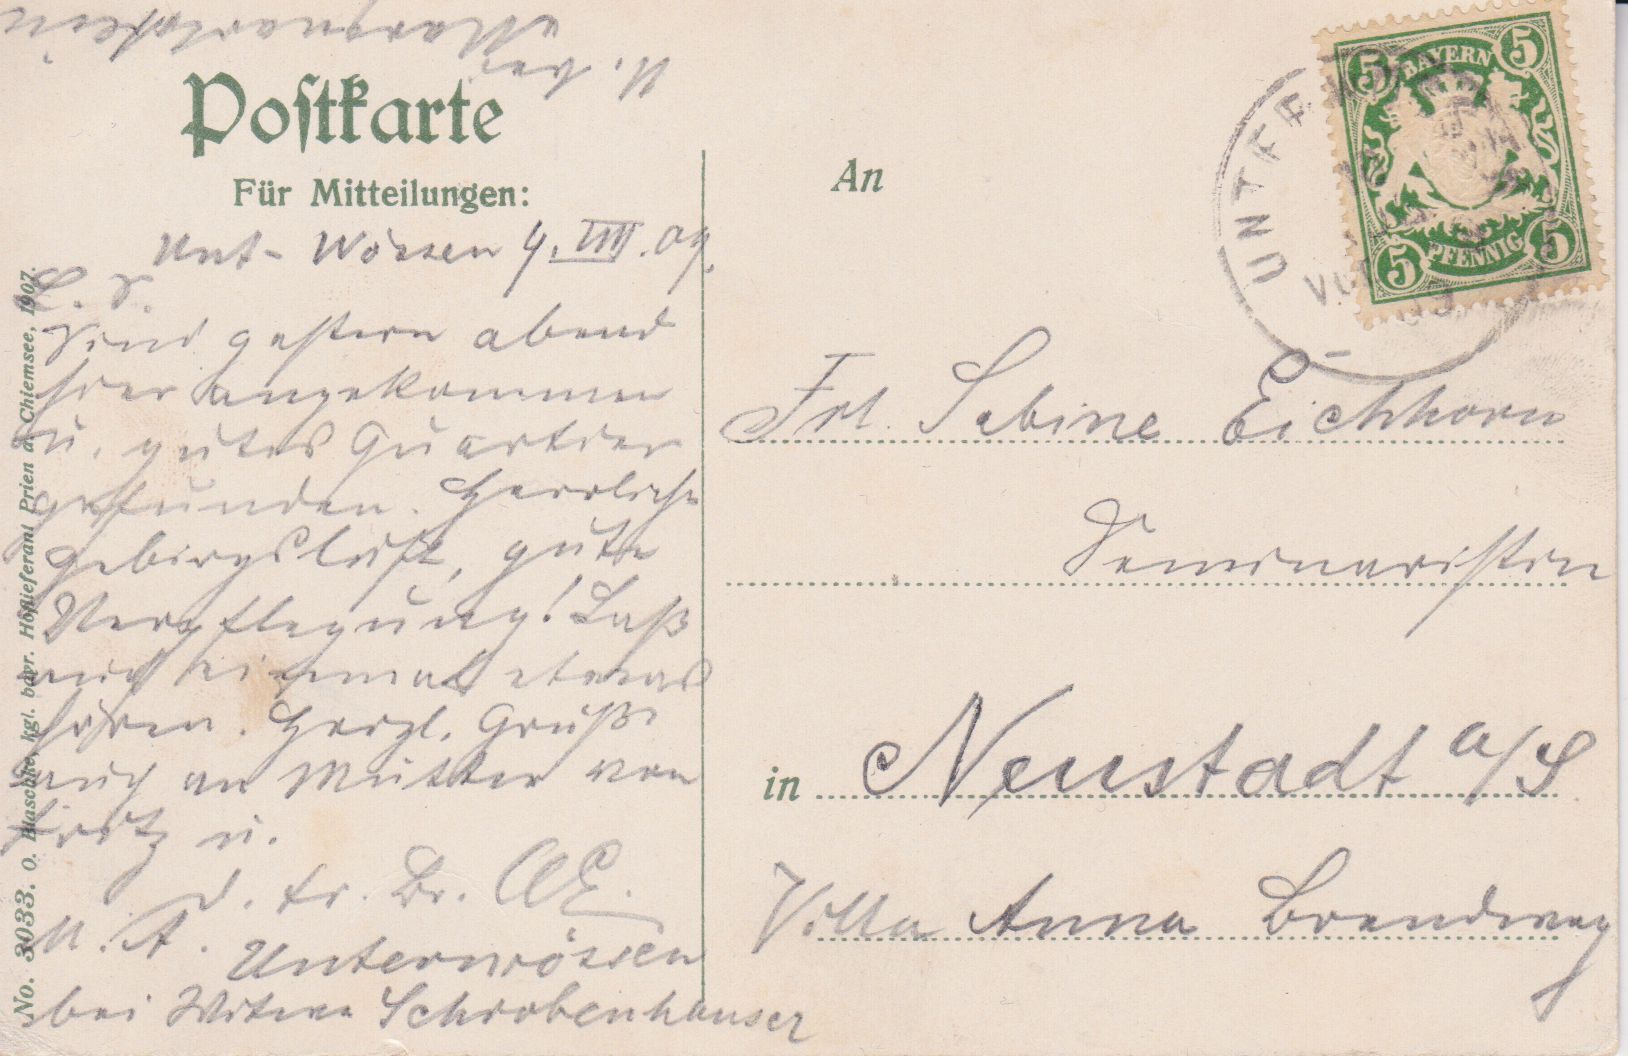 Postkarte
Für Mitteilungen:
Unt-Wössen 4. VIII. 09.
L. S.
Sind gestern abend
hier angekommen
u. gutes Quartier
gefunden. Herrliche
Gebirgsluft, gute
Verpflegung! Laß
auch einmal etwas
hören. Herzl. Grüße
auch an Mutter von
Fritz u.
d. tr. Br.
M. A. Unterwössen
bei Witwe Schrobenhauser
u. bei
No. 3033. O. Blaschke, kgl. bayr. Hoflieferant Prien a. Chiemsee, 1907.
BAYERN
5 5
5 5
PFENNIG
UNTER
An
Frl. Sabine Eichhorn
Seminaristin
in Neustadt a/S
Villa Anna Brendweg